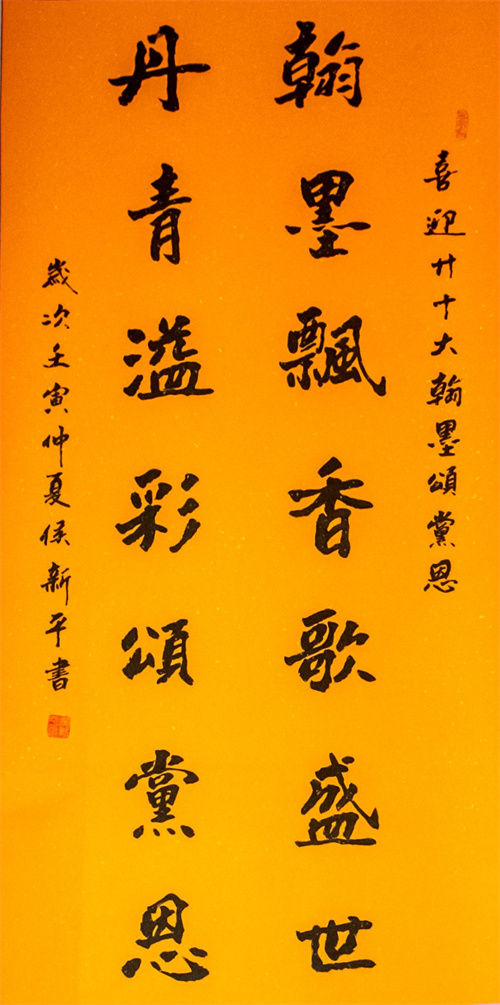 喜迎廿十大翰墨頌黨恩
翰墨飄香歌盛世
丹青溢彩頌黨恩
歲次壬寅仲夏侯新平書